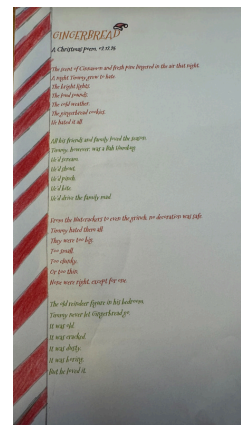 GINGERBREAD
A Christmas Poem.
The scent of Cinnamon and fresh pine lingered in the air that night.
A night Timmy grew to hate
The bright lights.
The loud sounds.
The cold weather.
The gingerbread cookies.
He hated it all
All his friends and family loved the season
Timmy, however, was a Bah Humbug.
He'd scream.
He'd shout.
He'd pinch.
He'd bite.
He'd drive the family mad.
From the Nutcrackers to even the grinch, no decoration was safe
Timmy hated them all
They were too big.
Too small.
Too chunky.
Or too thin.
None were right, except for one.
The old reindeer figure in his bedroom.
Timmy never let Gingerbread go.
It was old
It was cracked
It was dusty.
It was boring.
But he loved it.